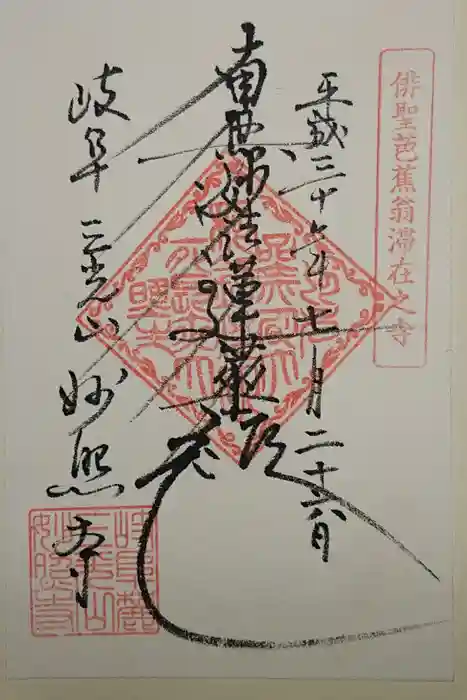 俳聖芭蕉翁滞在之寺
平成二十六年七月二十六日
南無妙法蓮華経
岐阜 三光山 妙照寺
岐阜麓
三光山
妙照寺